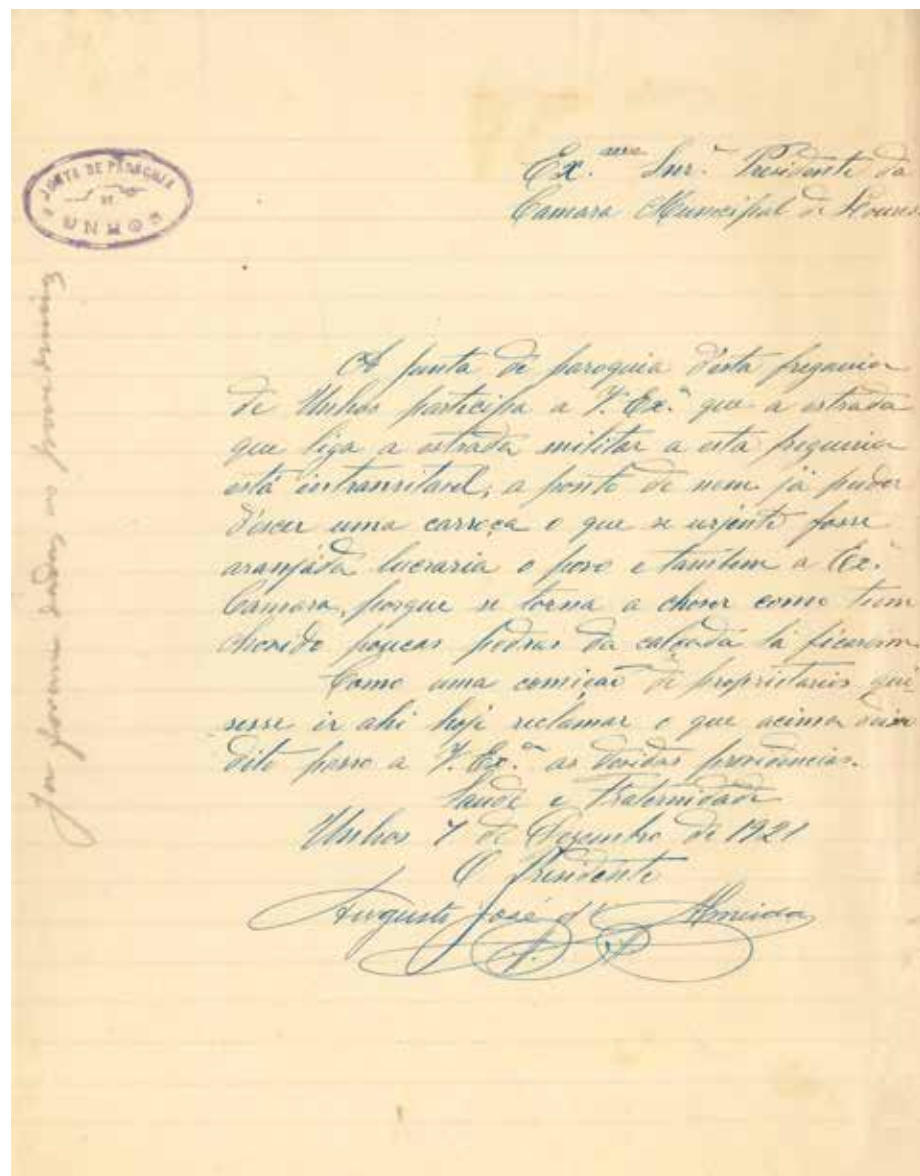 JUNTA DE PAROCHIA
DE
UNHOS
Ex.mo Snr. Presidente da
Camara Municipal de Loures
Já foram dadas as providencias
A junta de paroquia d'esta freguesia
de Unhos participa a V. Ex.ª que a estrada
que liga a estrada militar a esta freguesia
está intransitavel, a ponto de nem já puder
d'scer uma carroça o que se urjente fosse
aranjada lucraria o povo e tambem a Ex.ª
Camara, porque se torna a chover como tem
chovido poucas pedras da calçada lá ficaram
Como uma comição de proprietarios qui
sesse ir ahi hoje reclamar o que acima deixo
dito passo a V. Ex.ª as devidas providencias.
Saude e Fraternidade
Unhos 7 de Dezembro de 1921
O Presidente
Augusto José d' Almeida